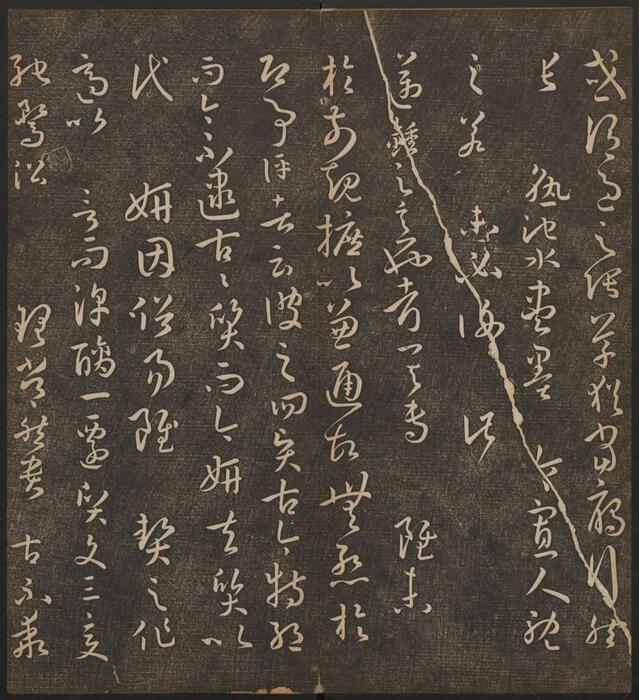 或謂過之張草猶當鴈行然
張 熟池水盡墨 令寡人耽
之若 未必謝 此
邁鍾之意也考其專 雖未
於前規摭以兼通故無慙於
即事評者云彼之四賢古今特絕
而今不逮古古質而今妍夫質以
代 妍因俗易雖 契之作
適以 言而淳醨一遷質文三變
馳鶩沿 理常然貴 古不乖